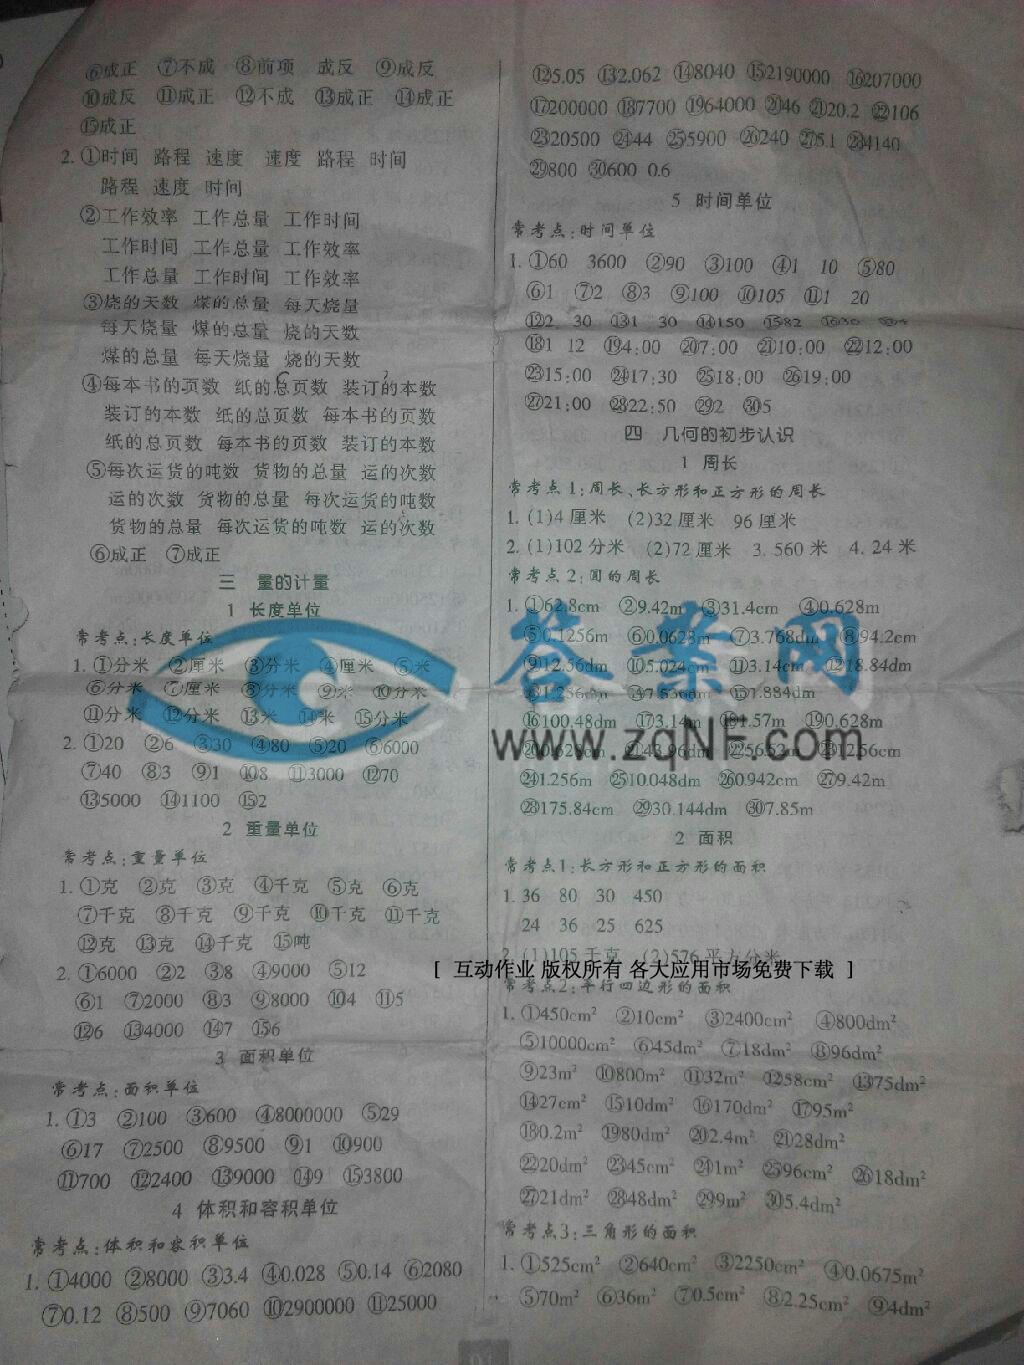 ⑥成正 ⑦不成 ⑧前项 成反 ⑨成反
⑩成反 ⑪成正 ⑫不成 ⑬成正 ⑭成正
⑮成正
2. ①时间 路程 速度 速度 路程 时间
路程 速度 时间
②工作效率 工作总量 工作时间
工作时间 工作总量 工作效率
工作总量 工作时间 工作效率
③烧的天数 煤的总量 每天烧量
每天烧量 煤的总量 烧的天数
煤的总量 每天烧量 烧的天数
④每本书的页数 纸的总页数 装订的本数
装订的本数 纸的总页数 每本书的页数
纸的总页数 每本书的页数 装订的本数
⑤每次运货的吨数 货物的总量 运的次数
运的次数 货物的总量 每次运货的吨数
货物的总量 每次运货的吨数 运的次数
⑥成正 ⑦成正
三 量的计量
1 长度单位
常考点:长度单位
1. ①分米 ②厘米 ③分米 ④厘米 ⑤米
⑥分米 ⑦厘米 ⑧分米 ⑨米 ⑩分米
⑪分米 ⑫分米 ⑬米 ⑭米 ⑮分米
2. ①20 ②6 ③30 ④80 ⑤20 ⑥6000
⑦40 ⑧3 ⑨1 ⑩8 ⑪3000 ⑫70
⑬5000 ⑭1100 ⑮2
2 重量单位
常考点:重量单位
1. ①克 ②克 ③克 ④千克 ⑤克 ⑥克
⑦千克 ⑧千克 ⑨千克 ⑩千克 ⑪千克
⑫克 ⑬克 ⑭千克 ⑮吨
2. ①6000 ②2 ③8 ④9000 ⑤12
⑥1 ⑦2000 ⑧3 ⑨8000 ⑩4 ⑪5
⑫6 ⑬4000 ⑭7 ⑮6
3 面积单位
常考点:面积单位
1. ①3 ②100 ③600 ④8000000 ⑤29
⑥17 ⑦2500 ⑧9500 ⑨1 ⑩900
⑪700 ⑫2400 ⑬9000 ⑭9 ⑮3800
4 体积和容积单位
常考点:体积和容积单位
1. ①4000 ②8000 ③3.4 ④0.028 ⑤0.14 ⑥2080
⑦0.12 ⑧500 ⑨7060 ⑩2900000 ⑪25000
⑫5.05 ⑬2.062 ⑭8040 ⑮2190000 ⑯207000
⑰200000 ⑱7700 ⑲64000 ⑳46 ㉑20.2 ㉒106
㉓20500 ㉔44 ㉕5900 ㉖240 ㉗5.1 ㉘4140
㉙800 ㉚600 0.6
5 时间单位
常考点:时间单位
1. ①60 3600 ②90 ③100 ④1 10 ⑤80
⑥1 ⑦2 ⑧3 ⑨100 ⑩105 ⑪1 20
⑫2 30 ⑬1 30 ⑭150 ⑮82
⑱1 12 ⑲4:00 ⑳7:00 ㉑10:00 ㉒12:00
㉓15:00 ㉔17:30 ㉕18:00 ㉖19:00
㉗21:00 ㉘22:50 ㉙2 ㉚5
四 几何的初步认识
1 周长
常考点1:周长、长方形和正方形的周长
1. (1)4厘米 (2)32厘米 96厘米
2. (1)102分米 (2)72厘米 3. 560米 4. 24米
常考点2:圆的周长
1. ①62.8cm ②9.42m ③31.4cm ④0.628m
⑤0.1256m ⑥0.0628m ⑦3.768dm ⑧94.2cm
⑨12.56dm ⑩5.024cm ⑪3.14cm ⑫18.84dm
⑬1.256m ⑭7.536m ⑮1.884dm
⑯100.48dm ⑰3.14m ⑱1.57m ⑲0.628m
⑳0.628m ㉑43.96dm ㉒56.52m ㉓12.56cm
㉔1.256m ㉕10.048dm ㉖0.942cm ㉗9.42m
㉘175.84cm ㉙30.144dm ㉚7.85m
2 面积
常考点1:长方形和正方形的面积
1. 36 80 30 450
24 36 25 625
2. (1)105千克 (2)576平方分米
常考点2:平行四边形的面积
1. ①450cm² ②10cm² ③2400cm² ④800dm²
⑤10000cm² ⑥45dm² ⑦18dm² ⑧96dm²
⑨23m² ⑩800m² ⑪32m² ⑫58cm² ⑬75dm²
⑭27cm² ⑮10dm² ⑯170dm² ⑰95m²
⑱0.2m² ⑲80dm² ⑳2.4m² ㉑28dm²
㉒20dm² ㉓45cm² ㉔1m² ㉕96cm² ㉖18dm²
㉗21dm² ㉘48dm² ㉙9m² ㉚5.4dm²
常考点3:三角形的面积
1. ①525cm² ②640cm² ③2250cm² ④0.0675m²
⑤70m² ⑥36m² ⑦0.5cm² ⑧2.25cm² ⑨4dm²
答案网
www.zqNF.com
[ 互动作业 版权所有 各大应用市场免费下载 ]